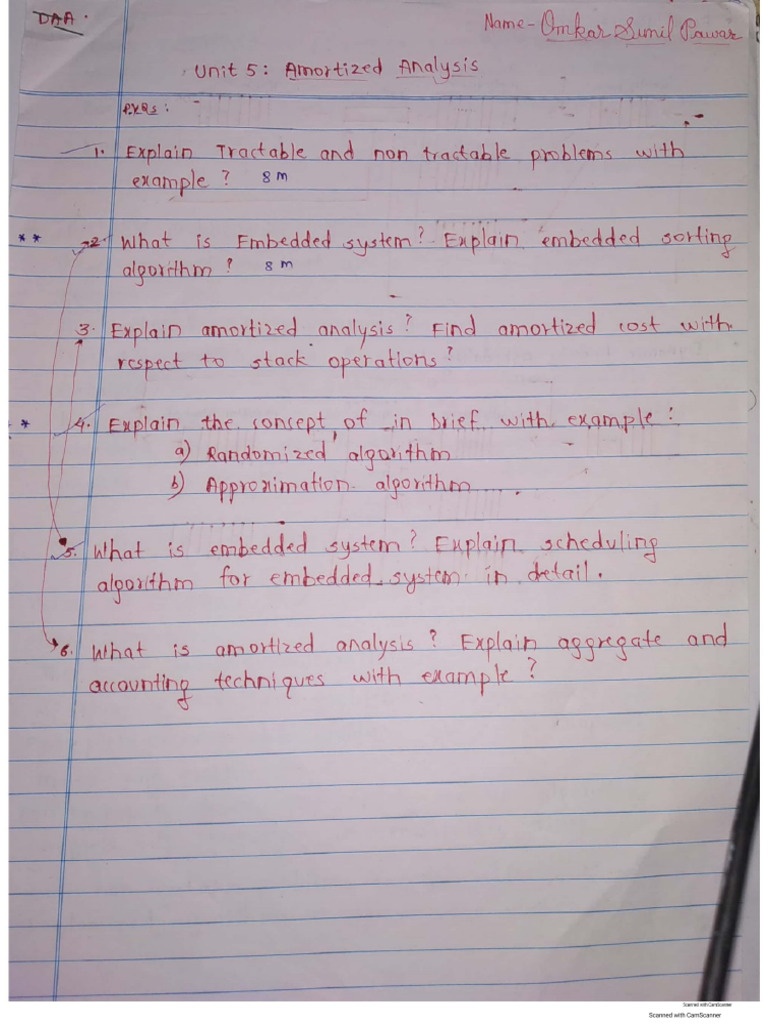 DAA.
Name- Omkar Sunil Pawar
Unit 5: Amortized Analysis
PYQs:
1. Explain Tractable and non tractable problems with
example ? 8 m
** 2. What is Embedded system? Explain embedded sorting
algorithm ? 8 m
3. Explain amortized analysis? Find amortized cost with
respect to stack operations?
* 4. Explain the concept of in brief with example :
a) Randomized algorithm
b) Approximation algorithm
5. What is embedded system? Explain scheduling
algorithm for embedded system in detail.
6. What is amortized analysis ? Explain aggregate and
accounting techniques with example ?
Scanned with CamScanner
Scanned with CamScanner